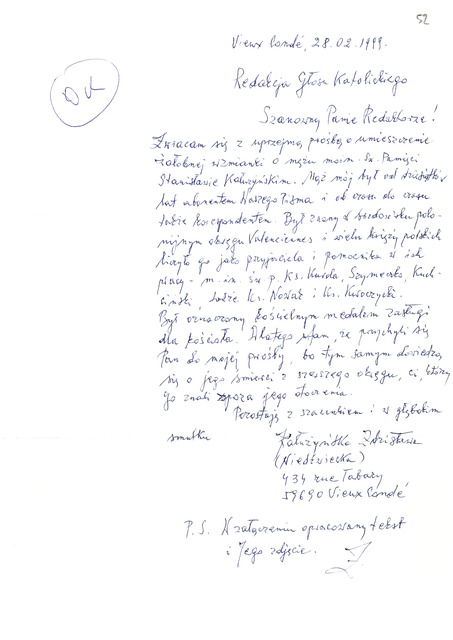 52
Vieux Condé, 28.02.1999.
OK
Redakcja Głosu Katolickiego
Szanowny Panie Redaktorze!
Zwracam się z uprzejmą prośbą o umieszczenie
żałobnej wzmianki o mężu moim Św. Pamięci
Stanisławie Kałużyńskim. Mąż mój był od dziesiątków
lat abonentem Waszego Pisma i od czasu do czasu
także korespondentem. Był znany w środowisku polo-
nijnym okręgu Valenciennes i wielu księży polskich
liczyło go jako przyjaciela i pomocnika w ich
pracy - m. in. św p. Ks. Kurda, Szymecko, Kuch-
ciński, także Ks. Nowak i Ks. Kuroczycki.
Był oznaczony kościelnym medalem zasługi
dla kościoła. Dlatego ufam, że przychyli się
Pan do mojej prośby, bo tym samym dowiedzą
się o jego śmierci z szerszego okręgu, ci, którzy
go znali spoza jego otoczenia.
Pozostaję z szacunkiem i w głębokim
smutku
Kałużyńska Zdzisława
(Niedźwiecka)
434 rue Tabary
59690 Vieux Condé
P.S. W załączeniu opracowany tekst
i Jego zdjęcie.